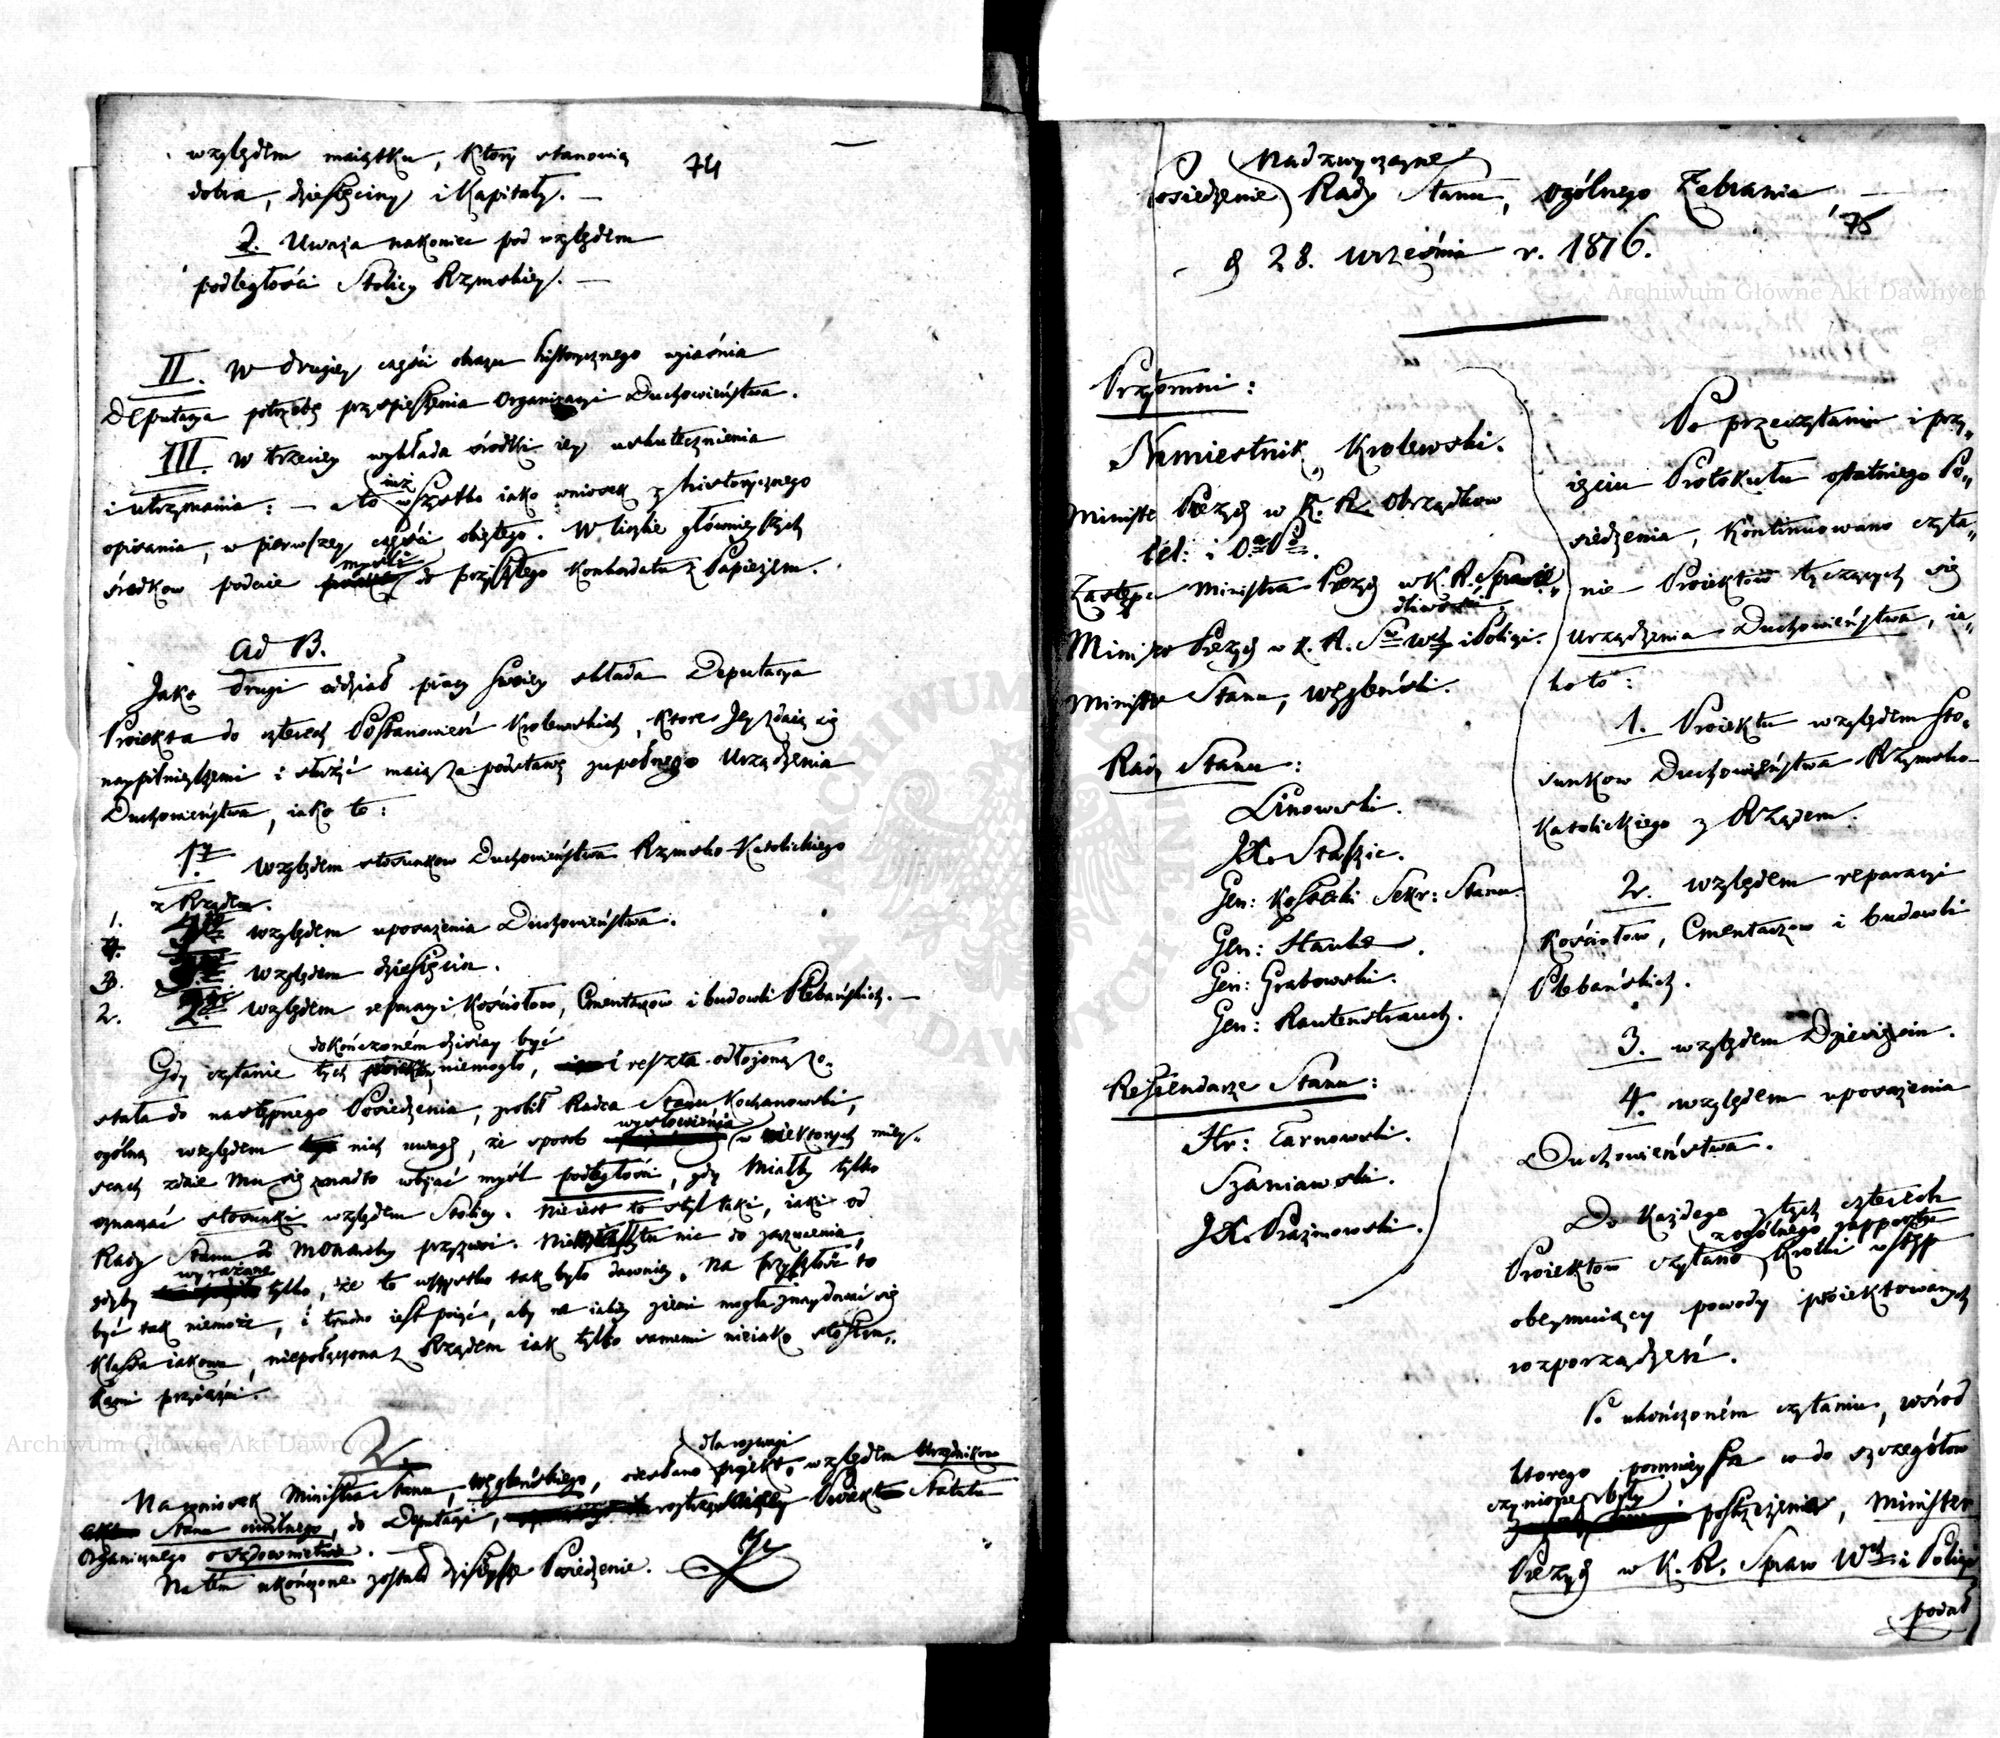 74
względem maiątku, który stanowią
dobra, dziesięciny i Kapitały. —
2. Uważa nakoniec pod względem
podległości Stolicy Rzymskiey. —
II. W drugiey części obrazu historycznego wyiaśnia
Deputacya potrzebę przyspieszenia Organizacyi Duchowieństwa.
III. W trzeciey wykłada środki iey uskutecznienia
i utrzymania: — a to iuż wszystko iako wniosek z historycznego
opisania, w pierwszey części obiętego. W liczbie głównieyszych
środkow podaie myśli do przyszłego Konkordatu z Papieżem.
ad B.
Jako drugi oddział pracy swoiey składa Deputacya
Proiekta do czterech Postanowień Krolewskich, ktore Jey zdaią się
naypilnieyszemi i służyć maią za podstawę zupełnego Urządzenia
Duchowieństwa, iako to:
1. względem stosunkow Duchowieństwa Rzymsko-Katolickiego
z Rządem.
względem uposażenia Duchowieństwa.
3. względem dziesięcin.
2. względem reparacyi Kościołow, Cmentarzow i budowli Plebańskich. —
dokończoném dzisiay być
Gdy czytanie tych niemogło, i reszta odłożoną zo-
stała do następnego Posiedzenia, zrobił Radca Stanu Kochanowski,
ogólną względem nich uwagę, że sposob wysłowienia w niektorych miey-
scach zdaie mu się zanadto wbijać myśl podległości, gdy miałby tylko
oznaczać stosunki względem Stolicy. Nieiest to styl taki, iaki od
Rady Stanu do Monarchy przyzwoi. nic do zarzucenia,
gdyby wyrażano tylko, że to wszystko tak było dawniey. Na przyszłość to
być tak niemoże, i trudno iest poiąć, aby na iakiey ziemi mogła znaydować się
Klassa iakowa, niepołączona z Rządem iak tylko samemi nieiako stosun-
kami przyiaźni.
Na wniosek Ministra Stanu, Węgleńskiego, odesłano dla rozwagi proiekt, względem Urzędnikow
Stanu cywilnego, do Deputacyi, Proiekt Statutu
Organicznego o sądownictwie.
Na tém ukończone zostało dzisieysze Posiedzenie.
75
Nadzwyczayne
Posiedzenie Rady Stanu, ogólnego Zebrania,
d 28. września r. 1816.
Przytomni:
Namiestnik Krolewski.
Minister Prezyd w K. R. Obrządkow
Rel: i O. P.
Zastępca Ministra Prezyd w K. R. Sprawie-
dliwości.
Minister Prezyd w K. R. S. W. i Policyi.
Minister Stanu, Węgleński.
Radcy Stanu:
Linowski.
JX. Staszic.
Gen: Kossecki Sekr: Stanu.
Gen: Hauke.
Gen: Grabowski.
Gen: Rautenstrauch.
Referendarze Stanu:
Hr: Tarnowski.
Szaniawski.
JX. Prażmowski.
Po przeczytaniu i przy-
ięciu Protokułu ostatniego Po-
siedzenia, Kontinuowano czyta-
nie Proiektów tyczących się
Urządzenia Duchowieństwa, ia-
ko to:
1. Proiektu względem sto-
sunkow Duchowieństwa Rzymsko-
Katolickiego z Rządem.
2. względem reparacyi
Kościołow, Cmentarzow i budowli
Plebańskich.
3. względem Dziesięcin.
4. względem uposażenia
Duchowieństwa.
Do każdego z tych czterech
Proiektow czytano z ogólnego rapportu krotki wstęp
obeymuiący powody proiektowanych
rozporządzeń.
Po ukończoném czytaniu, wśród
ktorego pomnieysze co do szczegółow
czynione były postrzeżenia, Minister
Prezyd w K. R. Spraw W. i Policyi
podał
Archiwum Główne Akt Dawnych